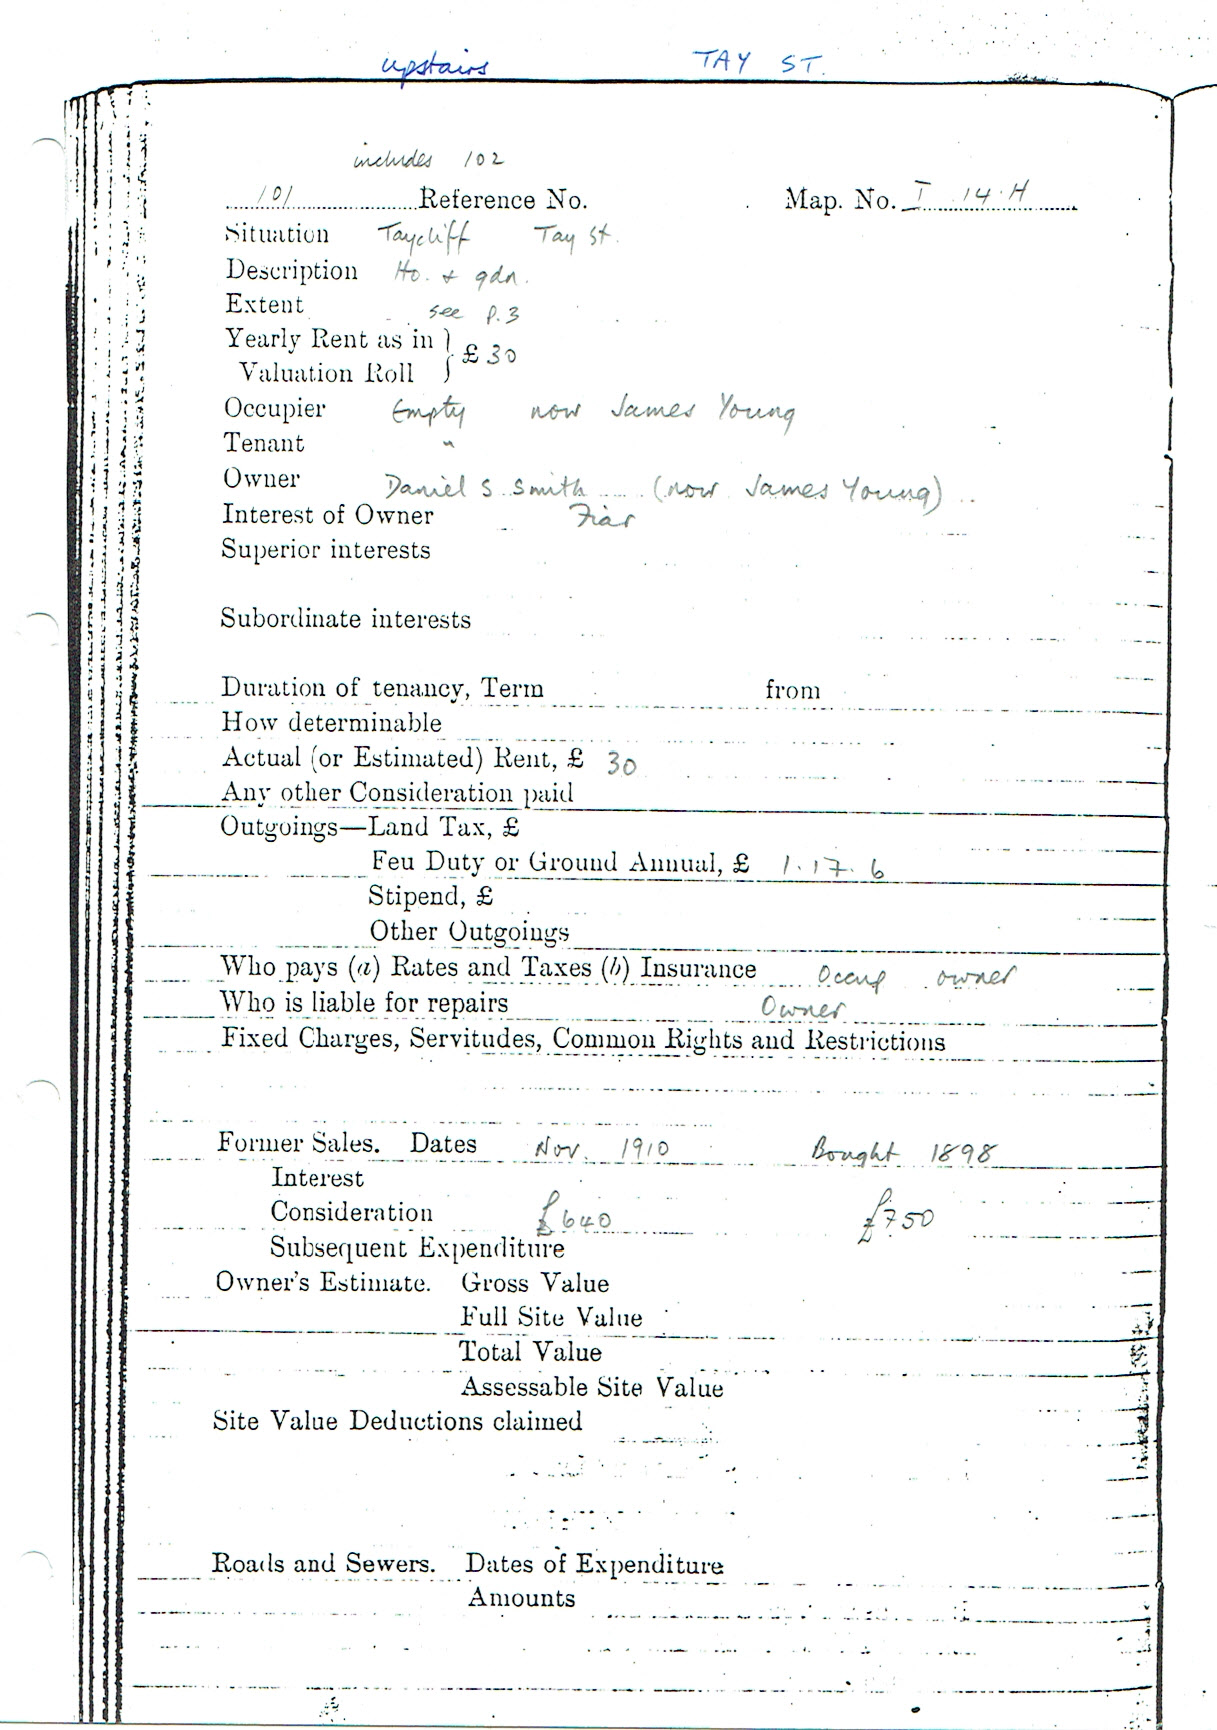 upstairs TAY ST.
includes 102
101 Reference No. Map. No. I 14.H
Situation Taycliff Tay St.
Description Ho. & gdn.
Extent see p.3
Yearly Rent as in
Valuation Roll } £30
Occupier Empty now James Young
Tenant "
Owner Daniel S Smith (now James Young)
Interest of Owner Fiar
Superior interests
Subordinate interests
Duration of tenancy, Term from
How determinable
Actual (or Estimated) Rent, £ 30
Any other Consideration paid
Outgoings—Land Tax, £
Feu Duty or Ground Annual, £ 1.17.6
Stipend, £
Other Outgoings
Who pays (a) Rates and Taxes (b) Insurance Occup owner
Who is liable for repairs Owner
Fixed Charges, Servitudes, Common Rights and Restrictions
Former Sales. Dates Nov. 1910 Bought 1898
Interest
Consideration £640 £750
Subsequent Expenditure
Owner's Estimate. Gross Value
Full Site Value
Total Value
Assessable Site Value
Site Value Deductions claimed
Roads and Sewers. Dates of Expenditure
Amounts